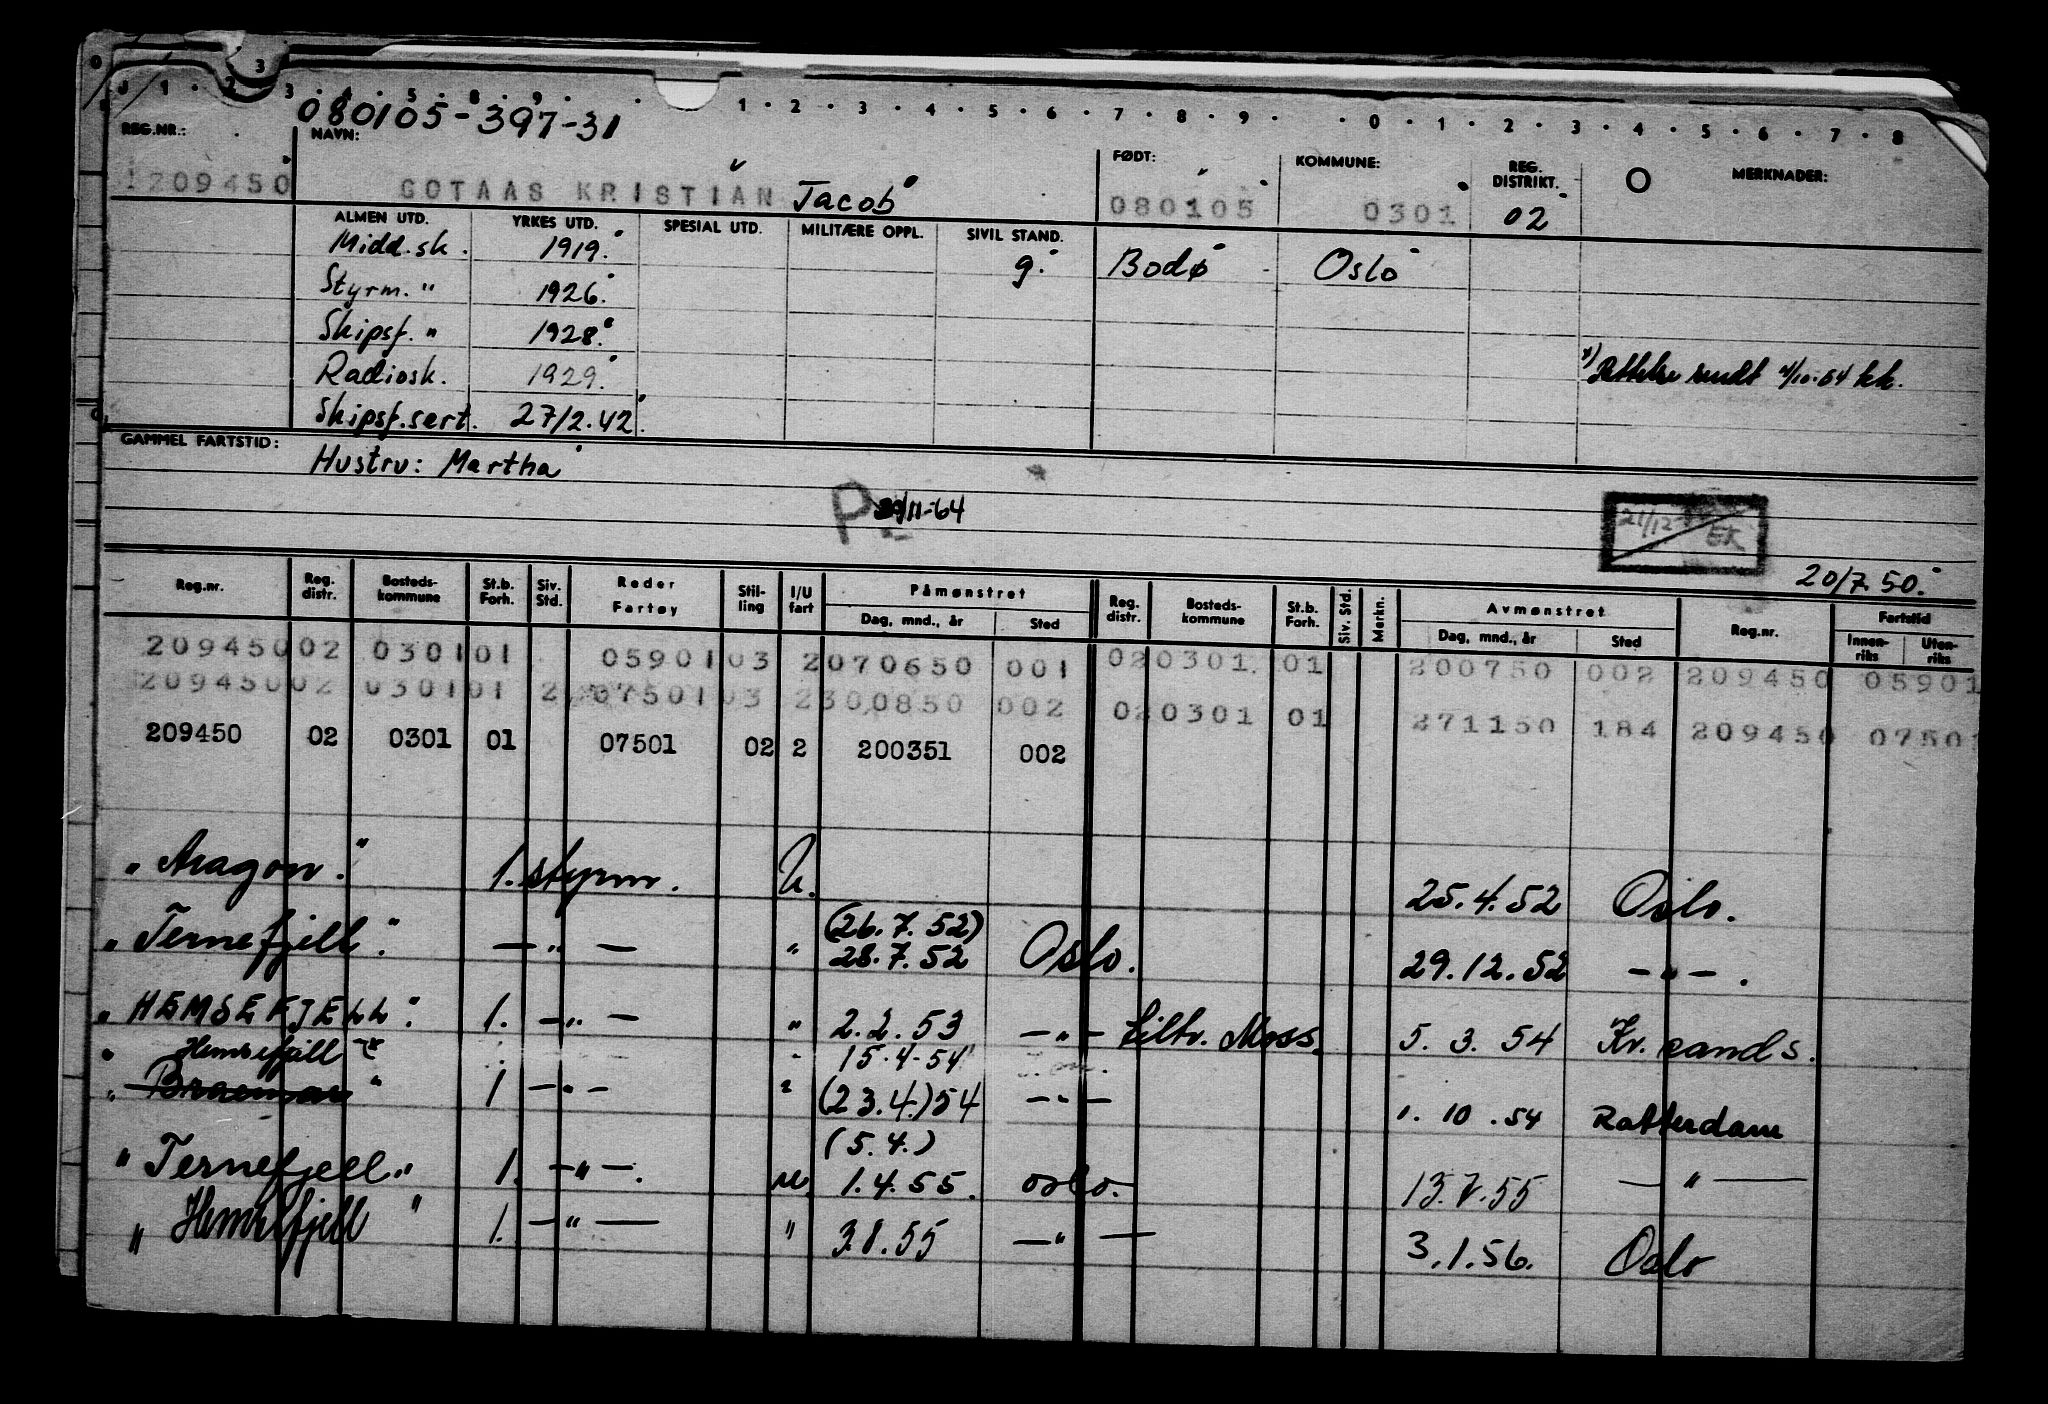 0 1 2 3 4 5 8 9 1 2 3 4 5 6 7 8 9 0 1 2 3 4 5 6 7 8
080105-397-31
REG.NR.: NAVN: FØDT: KOMMUNE: REG. DISTRIKT. O MERKNADER:
1209450 GOTAAS KRISTIAN Jacob 080105 0301 02
ALMEN UTD. YRKES UTD. SPESIAL UTD. MILITÆRE OPPL. SIVIL STAND.
Midd.sk. 1919. g. Bodø Oslo
Styrm. " 1926.
Skipsf. " 1928.
Radiosk. 1929. x) Rettelse sendt 4/10-54 kk.
Skipsf.sert. 27/2.42.
GAMMEL FARTSTID: Hustru: Martha
P. 11-64
21/12 EK
20/7 50.
Reg.nr. Reg. distr. Bosteds-kommune St.b. Forh. Siv. Std. Reder Fartøy Stil-ling I/U fart Påmønstret Dag, mnd., år Sted Reg. distr. Bosteds-kommune St.b. Forh. Siv. Std. Merkn. Avmønstret Dag, mnd., år Sted Reg.nr. Fartstid Innen-riks Uten-riks
209450 02 0301 01 05901 03 2 070650 001 02 0301 01 200750 002 209450 05901
209450 02 0301 01 2 07501 03 2 300850 002 02 0301 01 271150 184 209450 07501
209450 02 0301 01 07501 02 2 200351 002
"Aragon." 1. styrm. U. 25.4.52 Oslo.
"Ternefjell". — " — " (26.7.52) 28.7.52 Oslo. 29.12.52 — " — .
"HEMSEFJELL". 1. — " — " 2.2.53 — " — tiltr. Moss. 5. 3. 54 Kr.sands.
Hemsefjell x 15-4-54
"Braemar" 1 — " — " (23.4.) 54 — " — 1. 10 .54 Rotterdam
(5.4.)
"Ternefjell." 1. — " — . U. 1.4.55. Oslo. 13.7.55 — " —
"Hemsefjell" 1. — " — " 3.8.55 — " — 3.1.56. Oslo